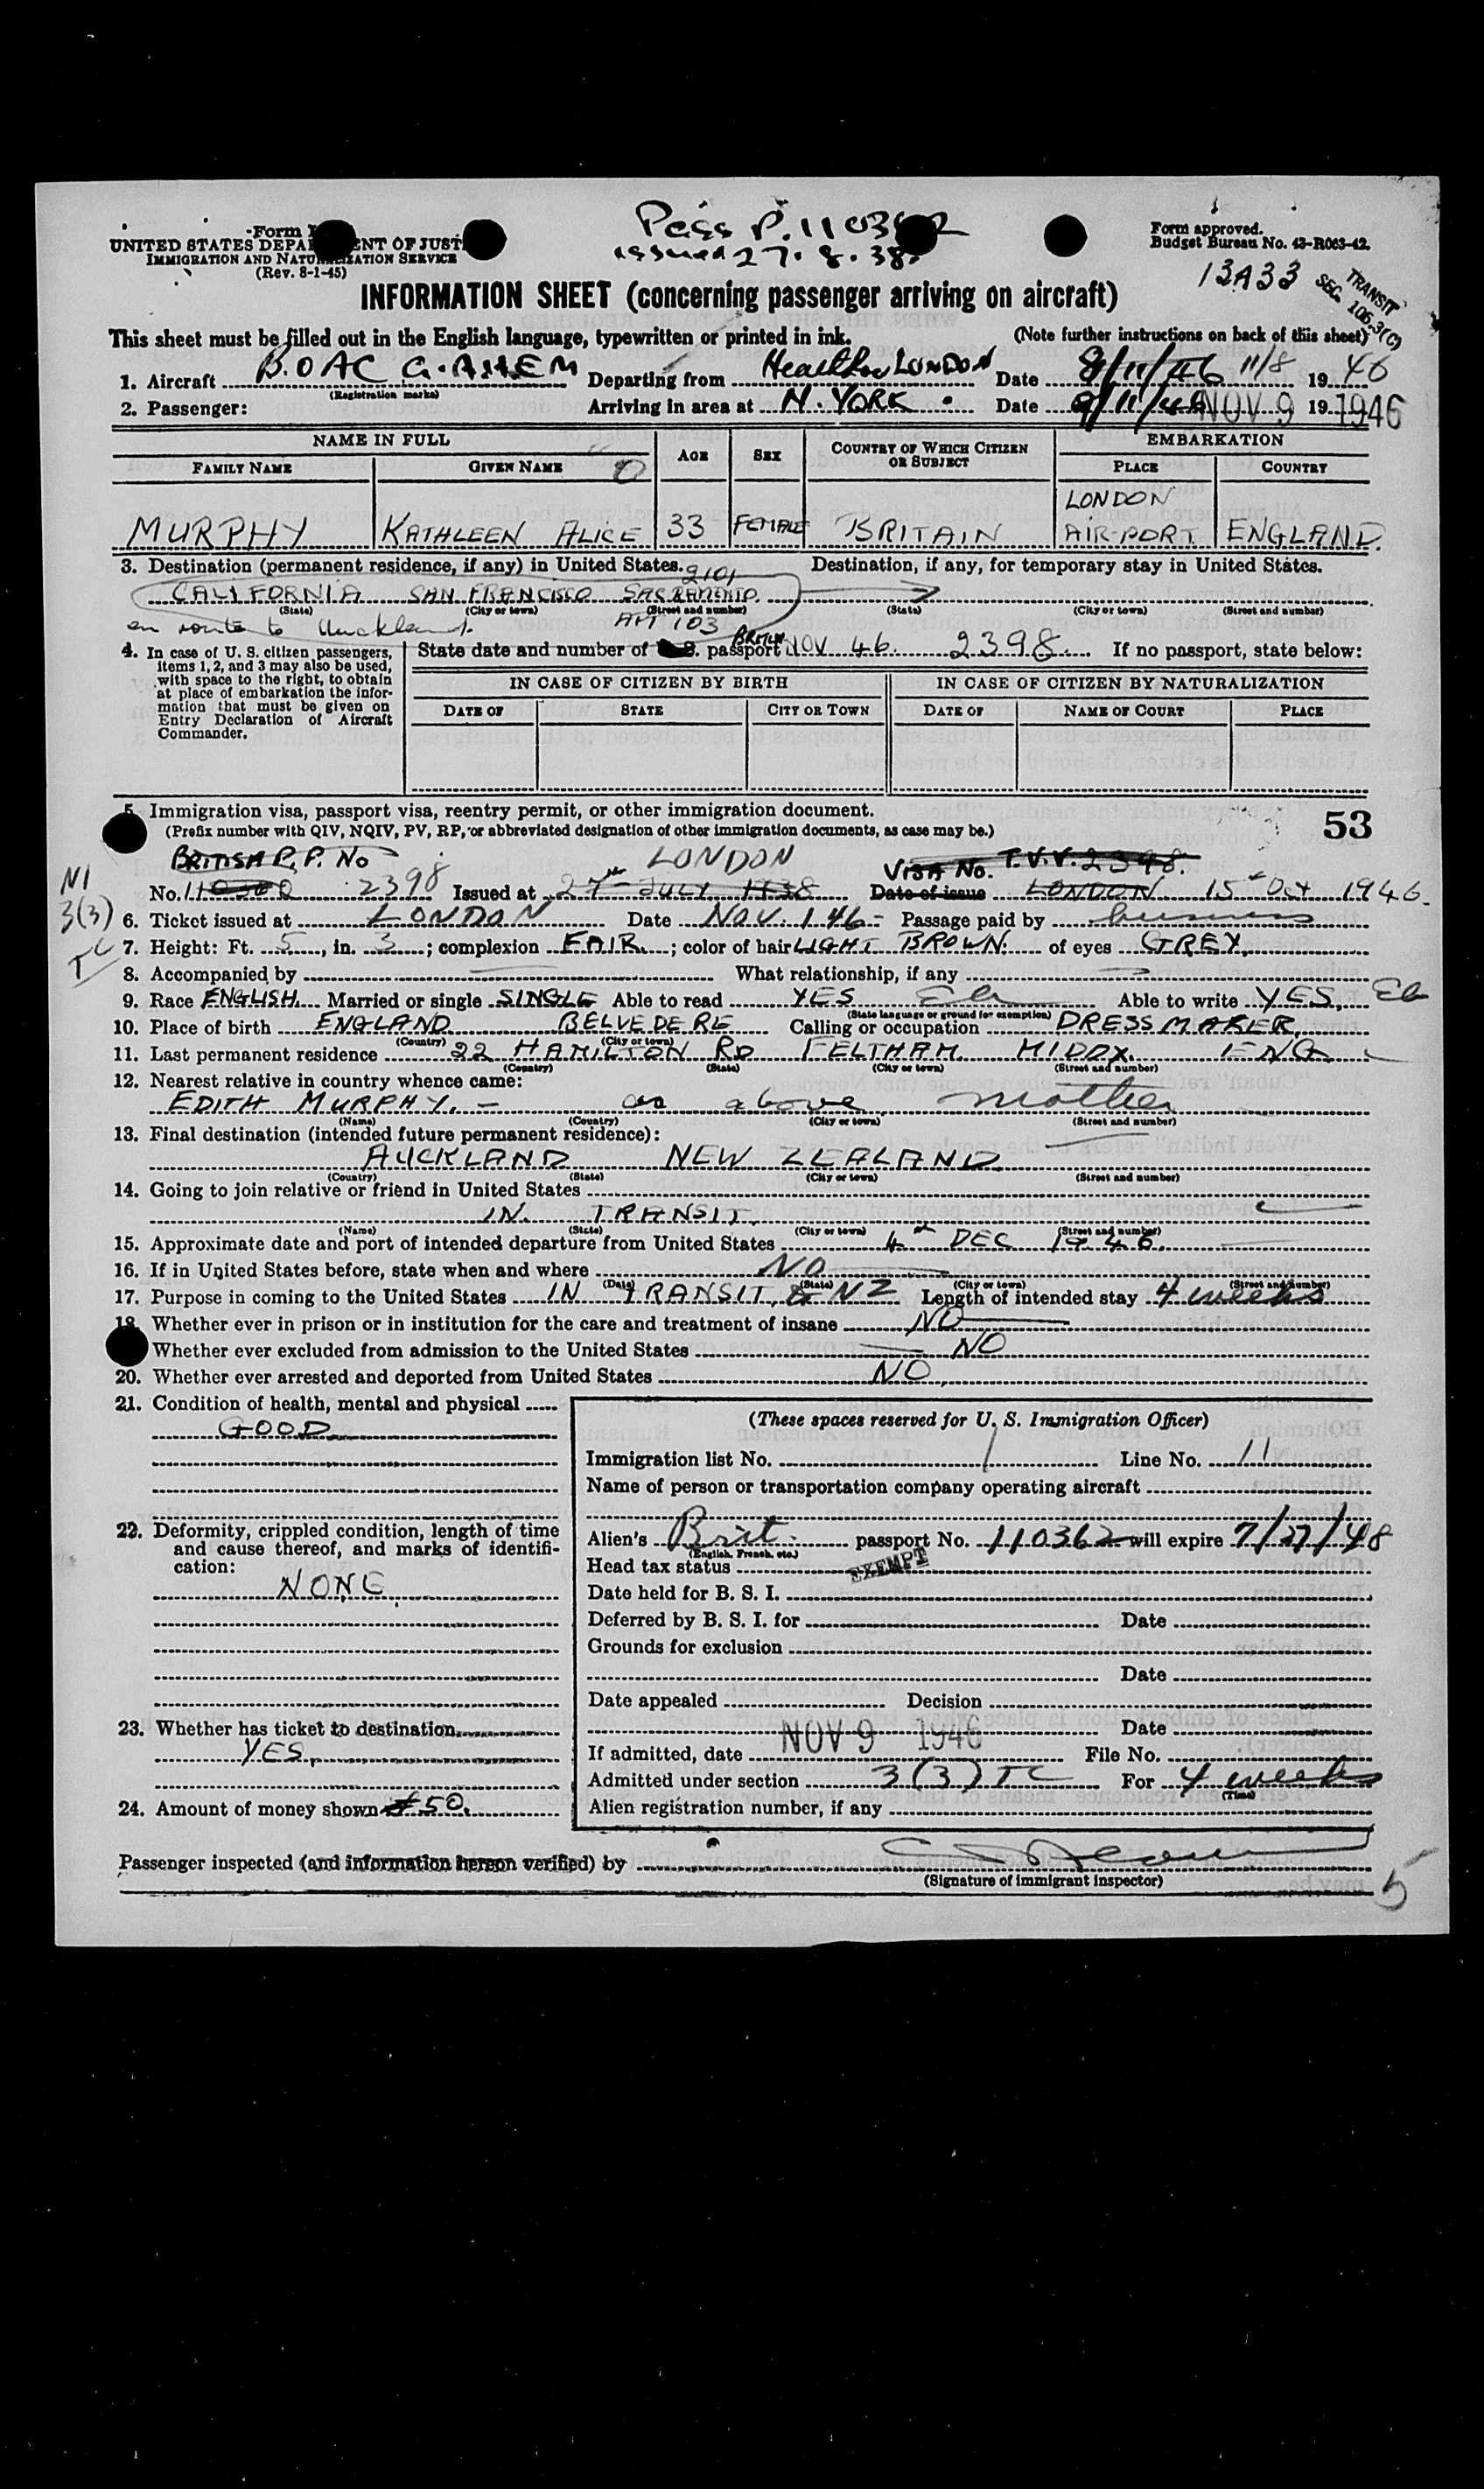 Form
UNITED STATES DEPARTMENT OF JUST
IMMIGRATION AND NATURALIZATION SERVICE
(Rev. 8-1-45)
Pass P. 110362
issued 27.8.38.
Form approved.
Budget Bureau No. 43-R063-42.
13A33
TRANSIT
SEC. 106.3(C)
INFORMATION SHEET (concerning passenger arriving on aircraft)
This sheet must be filled out in the English language, typewritten or printed in ink. (Note further instructions on back of this sheet)
1. Aircraft B.OAC G.AHEM Departing from Heathrow LONDON Date 8/11/46 11/8 1946
(Registration marks)
2. Passenger: Arriving in area at N. YORK. Date 9/11/46 NOV 9 19 1946
NAME IN FULL AGE SEX COUNTRY OF WHICH CITIZEN OR SUBJECT EMBARKATION
FAMILY NAME GIVEN NAME PLACE COUNTRY
LONDON
MURPHY KATHLEEN ALICE 33 FEMALE BRITAIN AIR-PORT ENGLAND.
3. Destination (permanent residence, if any) in United States. Destination, if any, for temporary stay in United States.
2101
CALIFORNIA SAN FRANCISCO SACRAMENTO
(State) (City or town) (Street and number) (State) (City or town) (Street and number)
en route to Auckland. APT 103
4. In case of U. S. citizen passengers, items 1, 2, and 3 may also be used, with space to the right, to obtain at place of embarkation the information that must be given on Entry Declaration of Aircraft Commander.
State date and number of U.S. BRITISH passport NOV 46. 2398. If no passport, state below:
IN CASE OF CITIZEN BY BIRTH IN CASE OF CITIZEN BY NATURALIZATION
DATE OF STATE CITY OR TOWN DATE OF NAME OF COURT PLACE
5. Immigration visa, passport visa, reentry permit, or other immigration document.
(Prefix number with QIV, NQIV, PV, RP, or abbreviated designation of other immigration documents, as case may be.)
53
BRITISH P.P. No LONDON VISA No. T.V.V. 2398.
No. 2398 Issued at 27th JULY 1938 Date of issue LONDON 15th Oct 1946.
N1
3(3)
TC
6. Ticket issued at LONDON Date NOV. 1. 46 Passage paid by business
7. Height: Ft. 5, in. 3; complexion FAIR; color of hair LIGHT BROWN. of eyes GREY
8. Accompanied by What relationship, if any
9. Race ENGLISH Married or single SINGLE Able to read YES Able to write YES,
(State language or ground for exemption)
10. Place of birth ENGLAND BELVEDERE Calling or occupation DRESSMAKER
(Country) (City or town)
11. Last permanent residence 22 HAMILTON RD FELTHAM MIDDX. ENG
(Country) (State) (City or town) (Street and number)
12. Nearest relative in country whence came:
EDITH MURPHY. - as above mother
(Name) (Country) (City or town) (Street and number)
13. Final destination (intended future permanent residence):
AUCKLAND NEW ZEALAND
(Country) (State) (City or town) (Street and number)
14. Going to join relative or friend in United States
IN TRANSIT
(Name) (State) (City or town) (Street and number)
15. Approximate date and port of intended departure from United States 4th DEC 1946.
16. If in United States before, state when and where NO
(Date) (State) (City or town) (Street and number)
17. Purpose in coming to the United States IN TRANSIT, to NZ Length of intended stay 4 weeks
18. Whether ever in prison or in institution for the care and treatment of insane NO
Whether ever excluded from admission to the United States NO
20. Whether ever arrested and deported from United States NO
21. Condition of health, mental and physical
GOOD
22. Deformity, crippled condition, length of time and cause thereof, and marks of identification:
NONE
23. Whether has ticket to destination
YES
24. Amount of money shown £50.
(These spaces reserved for U. S. Immigration Officer)
Immigration list No. 1 Line No. 11
Name of person or transportation company operating aircraft
Alien's Brit. passport No. 110362 will expire 7/27/48
(English, French, etc.)
Head tax status EXEMPT
Date held for B. S. I.
Deferred by B. S. I. for Date
Grounds for exclusion
Date
Date appealed Decision
Date
If admitted, date NOV 9 1946 File No.
Admitted under section 3(3) TC For 4 weeks
(Time)
Alien registration number, if any
Passenger inspected (and information hereon verified) by
(Signature of immigrant inspector)
5